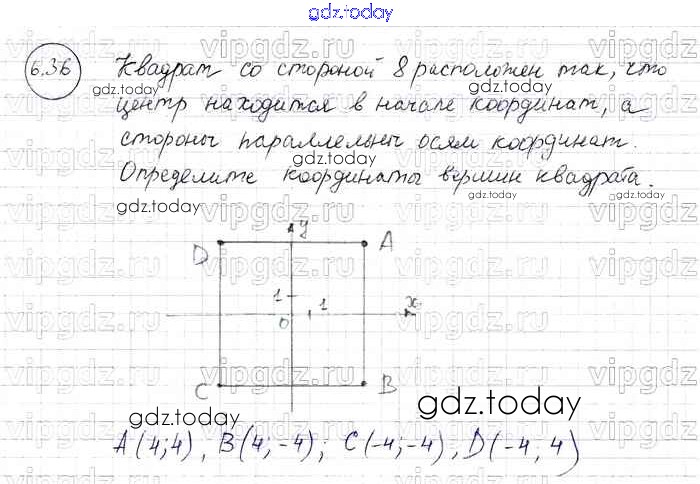 gdz.today
6.36 Квадрат со стороной 8 расположен так, что
gdz.today gdz.today
центр находится в начале координат, а
стороны параллельны осям координат.
gdz.today
Определите координаты вершин квадрата.
gdz.today gdz.today
y
D A
1 x
0 1
C B
gdz.today gdz.today
A(4;4), B(4;-4); C(-4;-4), D(-4, 4)
vipgdz.ru vipgdz.ru vipgdz.ru